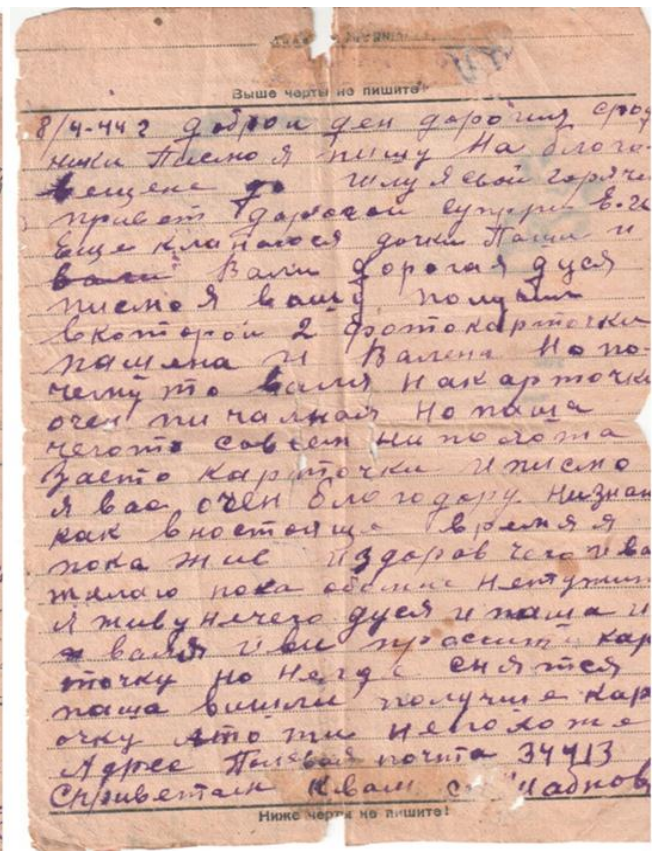 Выше черты не пишите!
8/4-44 г доброи ден дорогия срод
ники Писмо я пишу На благо
вещене шлу я свои горяче
привет дорогои супруги
Еще кланаюся дочки Паши и
Вали дорогая дуся
писмо я вашу получил
вкоторои 2 фотокарточки
пашена и Валена Но по-
чемуто валя Накарточки
очен пичалная Но паша
чегото совсем нипохожа
Заето карточки и писмо
я вас очен благодору. Низнаю
как вностояще время я
пока жив издоров чего ива
желаю пока обомне Нетужит
я живу нечего дуся и паша и
валя и ви просите кар
точку но негде снятся
паша вишли получше кар
очку ято ти непохоже
Адрес Полевая почта 34413
Сприветом Квам
Ниже черты не пишите!